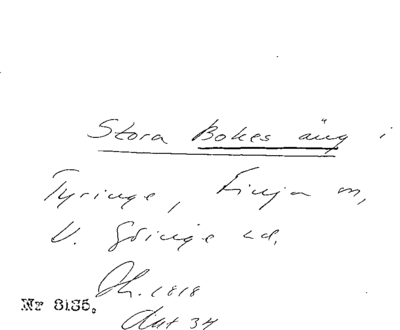 Stora Bokes äng i
Tyringe, Finja sn,
V. Göinge hd.
1818
Akt 34
Nr 8135.